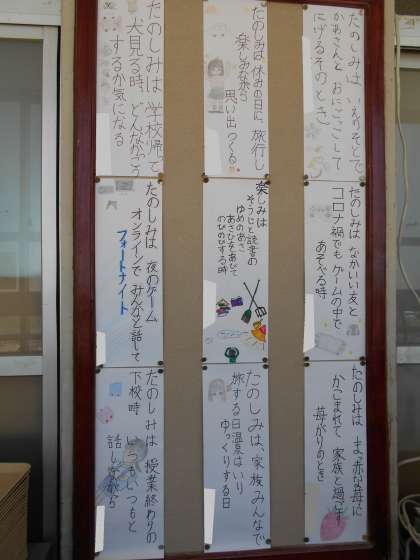 たのしみは いえのそとで
かあさんと おにごっこして
にげるそのとき
たのしみは 休みの日に、旅行し
楽しみながら
思い出つくる
たのしみは 学校帰りで
犬見る時 どんなかっこう
するか気になる
たのしみは なかいい友と
コロナ禍でも ゲームの中で
あそべる時
楽しみは
そうじと読書の
ゆめのあさ
あさひをあびて
のびのびする時
たのしみは 夜のゲーム
オンラインで みんなと話して
フォートナイト
たのしみは まっ赤な苺に
かこまれて 家族と過ごす
苺がりのとき
たのしみは、家族みんなで
旅する日温泉はいり
ゆっくりする日
たのしみは 授業終わりの
下校時 いつもいつもと
話しながら